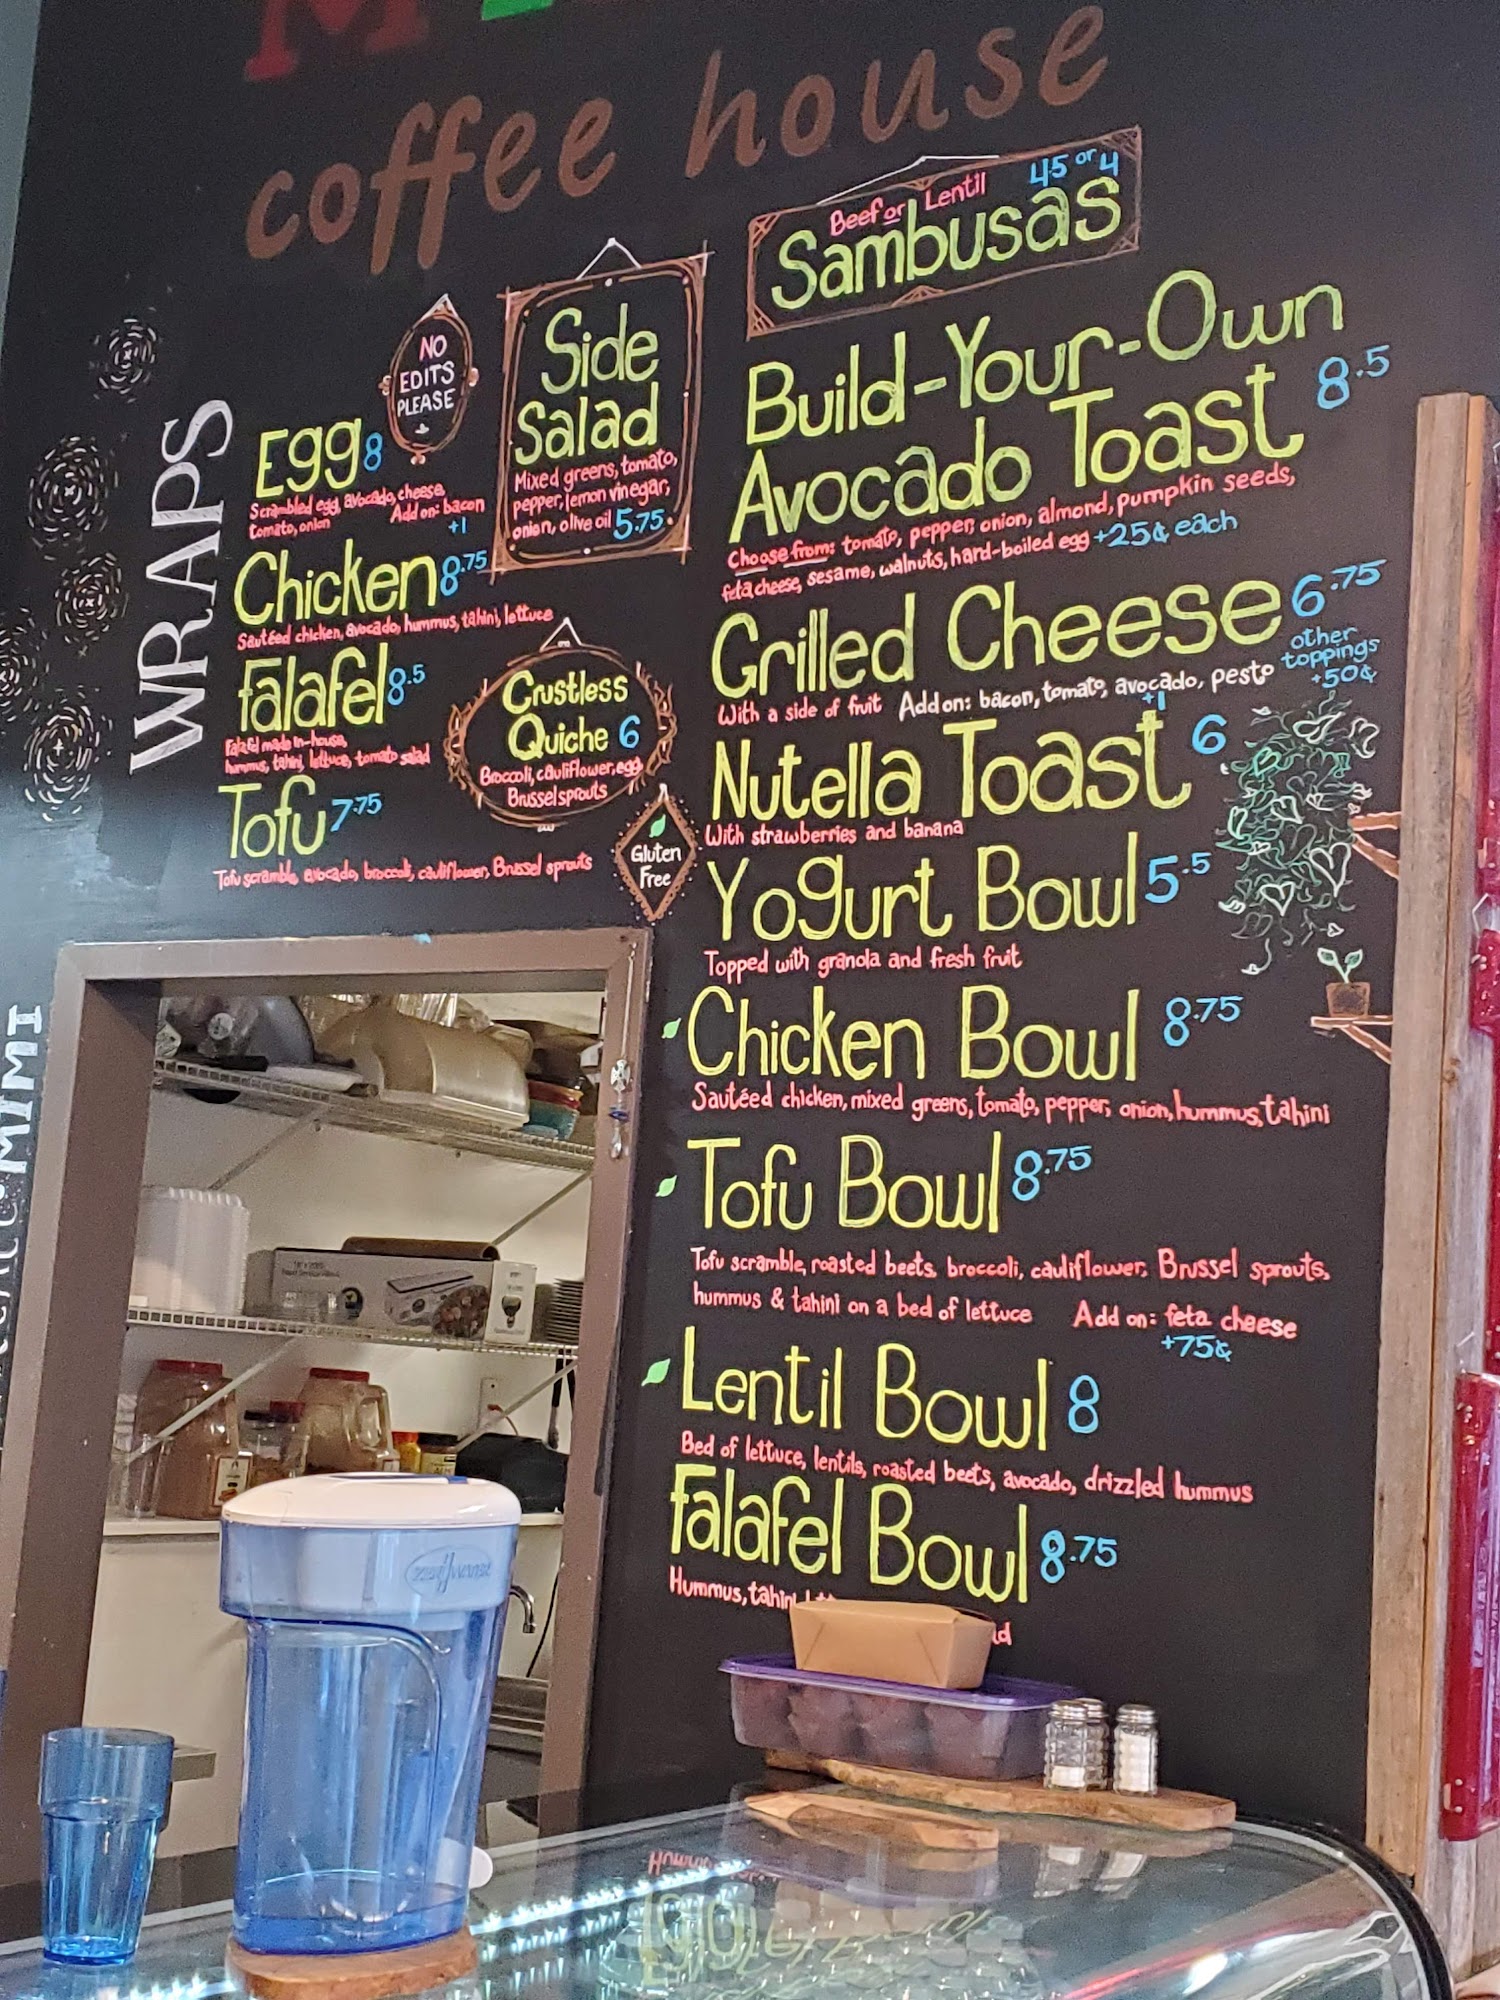 coffee house
Beef or Lentil
4.5 or 4
Sambusas
NO
EDITS
PLEASE
WRAPS
Egg 8
Scrambled egg, avocado, cheese,
tomato, onion
Add on: bacon
+1
Chicken 8.75
Sautéed chicken, avocado, hummus, tahini, lettuce
falafel 8.5
Falafel made in-house,
hummus, tahini, lettuce, tomato salad
Tofu 7.75
Tofu scramble, avocado, broccoli, cauliflower, Brussel sprouts
Side
Salad
Mixed greens, tomato,
pepper, lemon vinegar,
onion, olive oil 5.75
Crustless
Quiche 6
Broccoli, cauliflower, egg,
Brussel sprouts
Gluten
Free
Build-Your-Own
Avocado Toast 8.5
Choose from: tomato, pepper, onion, almond, pumpkin seeds,
feta cheese, sesame, walnuts, hard-boiled egg +25¢ each
Grilled Cheese 6.75
With a side of fruit Add on: bacon, tomato, avocado, pesto
+1
other
toppings
+50¢
Nutella Toast 6
With strawberries and banana
Yogurt Bowl 5.5
Topped with granola and fresh fruit
Chicken Bowl 8.75
Sautéed chicken, mixed greens, tomato, pepper, onion, hummus, tahini
Tofu Bowl 8.75
Tofu scramble, roasted beets, broccoli, cauliflower, Brussel sprouts,
hummus & tahini on a bed of lettuce Add on: feta cheese
+75¢
Lentil Bowl 8
Bed of lettuce, lentils, roasted beets, avocado, drizzled hummus
falafel Bowl 8.75
Hummus, tahini
MIMI